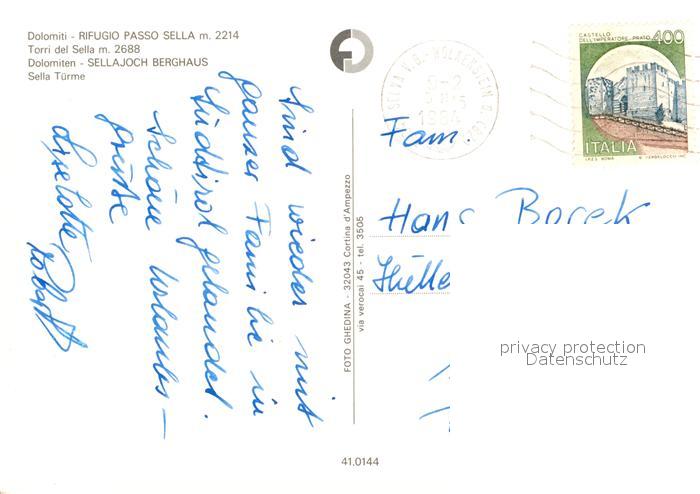 Dolomiti - RIFUGIO PASSO SELLA m. 2214
Torri del Sella m. 2688
Dolomiten - SELLAJOCH BERGHAUS
Sella Türme
Sind wieder mit
ganzer Familie in
Südtirol gelandet.
Schöne Urlaubs-
grüße
Liselotte,
FOTO GHEDINA - 32043 Cortina d'Ampezzo
via verocai 45 - tel. 3505
41.0144
SELVA V.G.-WOLKENSTEIN
1984
CASTELLO
DELL'IMPERATORE-PRATO
400
ITALIA
I.P.Z.S. ROMA
Fam.
Hans Borek
Hülle
privacy protection
Datenschutz